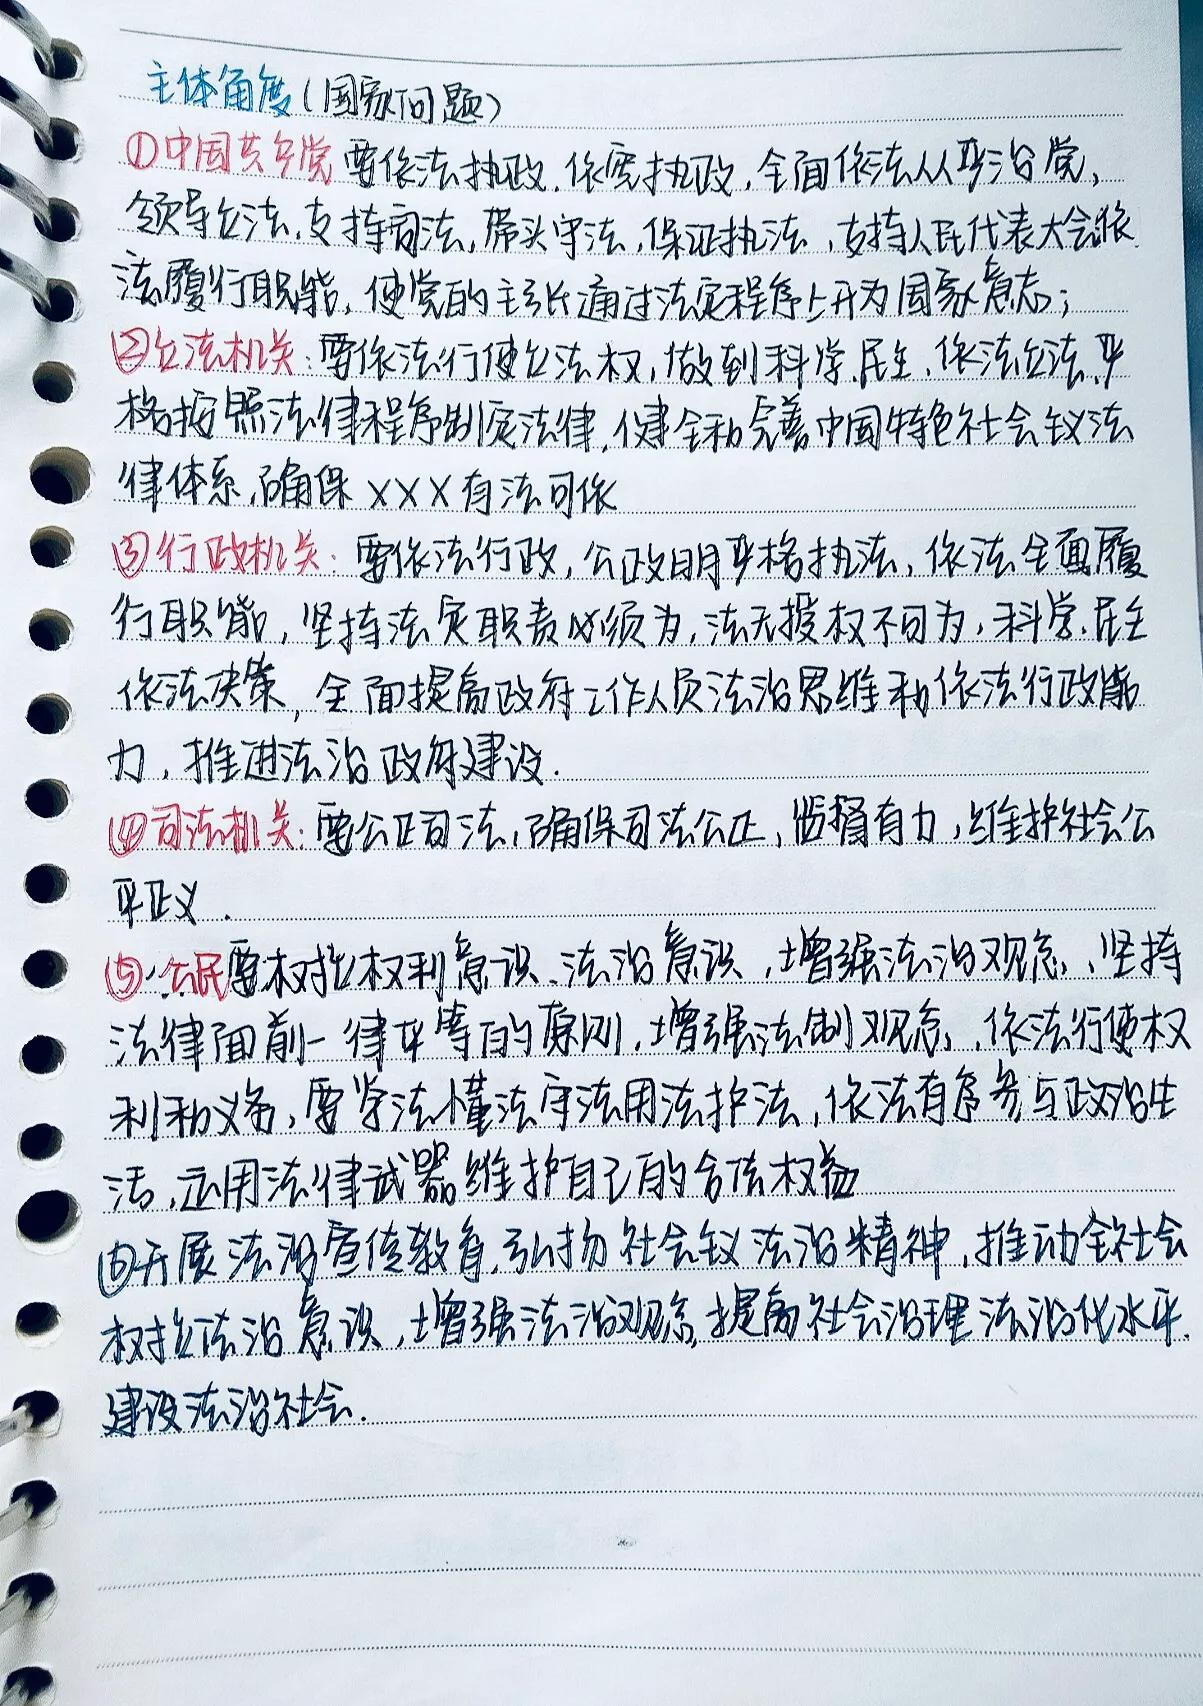 主体角度(国家问题)
①中国共产党要依法执政,依宪执政,全面依法从严治党,
领导立法,支持司法,带头守法,保证执法,支持人民代表大会依
法履行职能,使党的主张通过法定程序上升为国家意志;
②立法机关:要依法行使立法权,做到科学.民主.依法立法,严
格按照法律程序制定法律,健全和完善中国特色社会主义法
律体系,确保×××有法可依
③行政机关:要依法行政,公政明严格执法,依法全面履
行职能,坚持法定职责必须为,法无授权不可为,科学.民主
依法决策,全面提高政府工作人员法治思维和依法行政能
力,推进法治政府建设.
④司法机关:要公正司法,确保司法公正,监督有力,维护社会公
平正义.
⑤.公民要树立权利意识、法治意识,增强法治观念、坚持
法律面前一律平等的原则,增强法制观念,依法行使权
利和义务,要学法懂法守法用法护法,依法有序参与政治生
活,运用法律武器维护自己的合法权益
⑥开展法治宣传教育,弘扬社会主义法治精神,推动全社会
树立法治意识,增强法治观念,提高社会治理法治化水平.
建设法治社会.